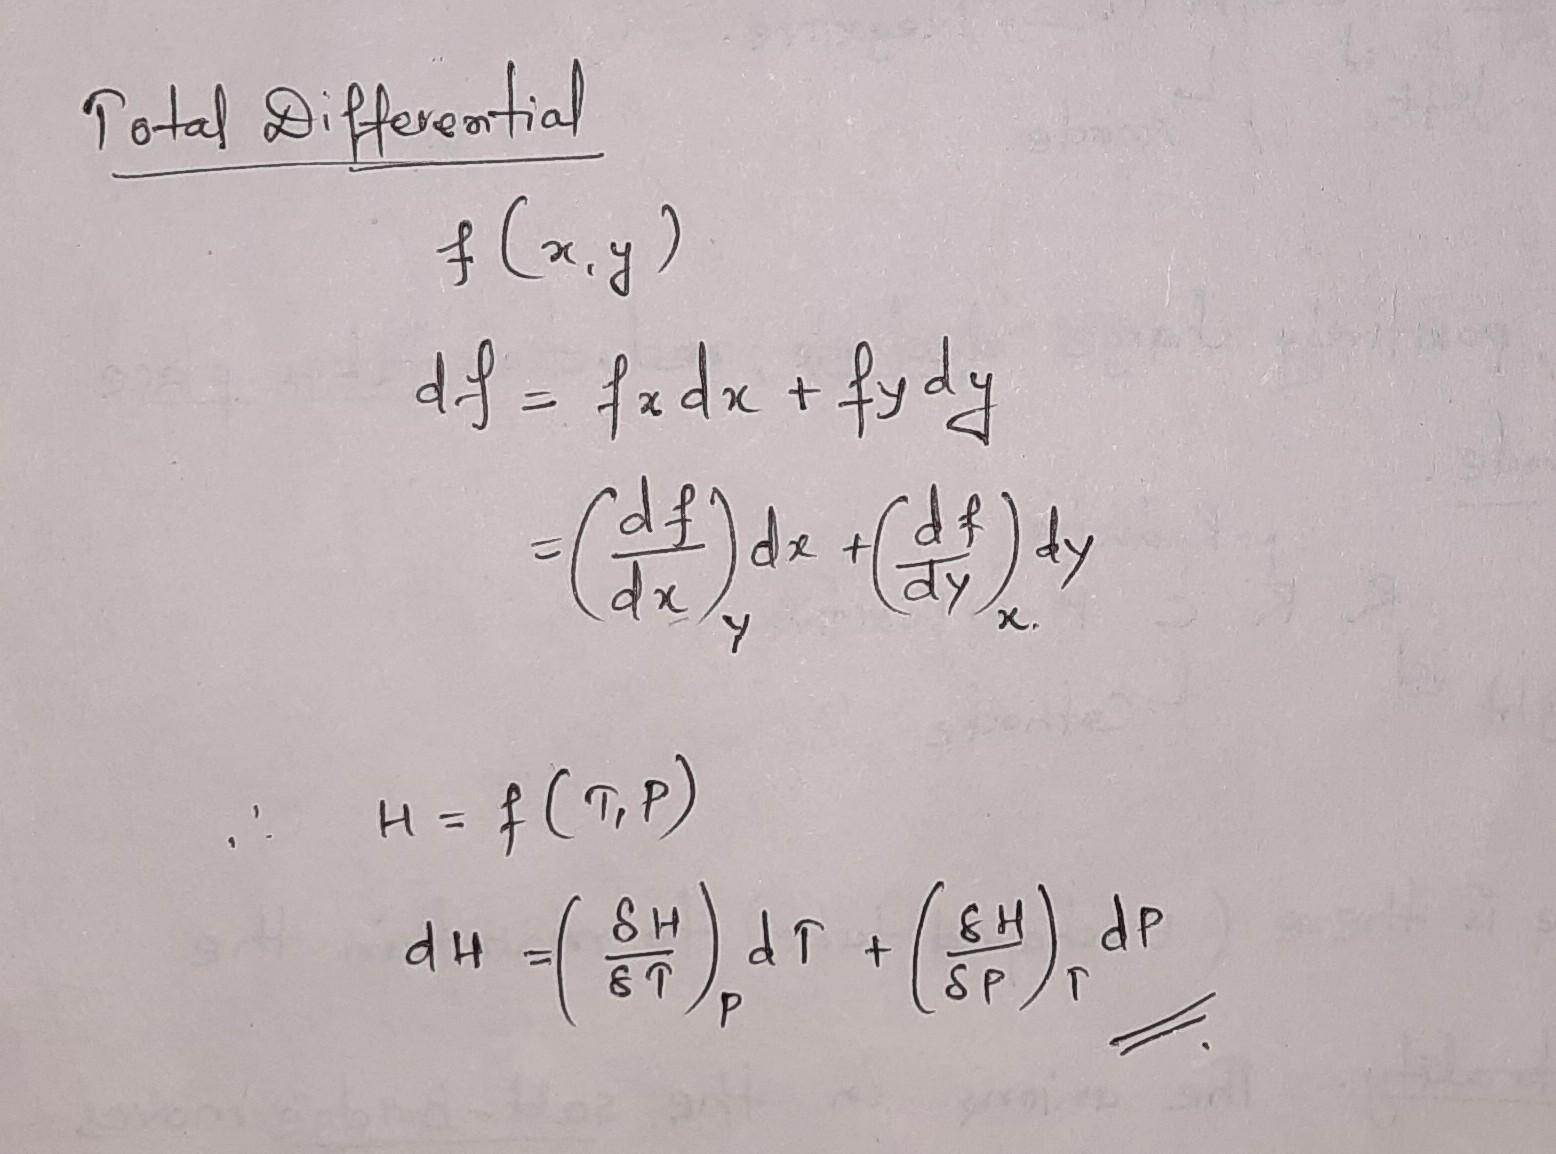 Total Differential
f(x,y)
df = fx dx + fy dy
= (df/dx)y dx + (df/dy)x. dy
∴ H = f(T,P)
dH = (δH/δT)P dT + (δH/δP)T dP